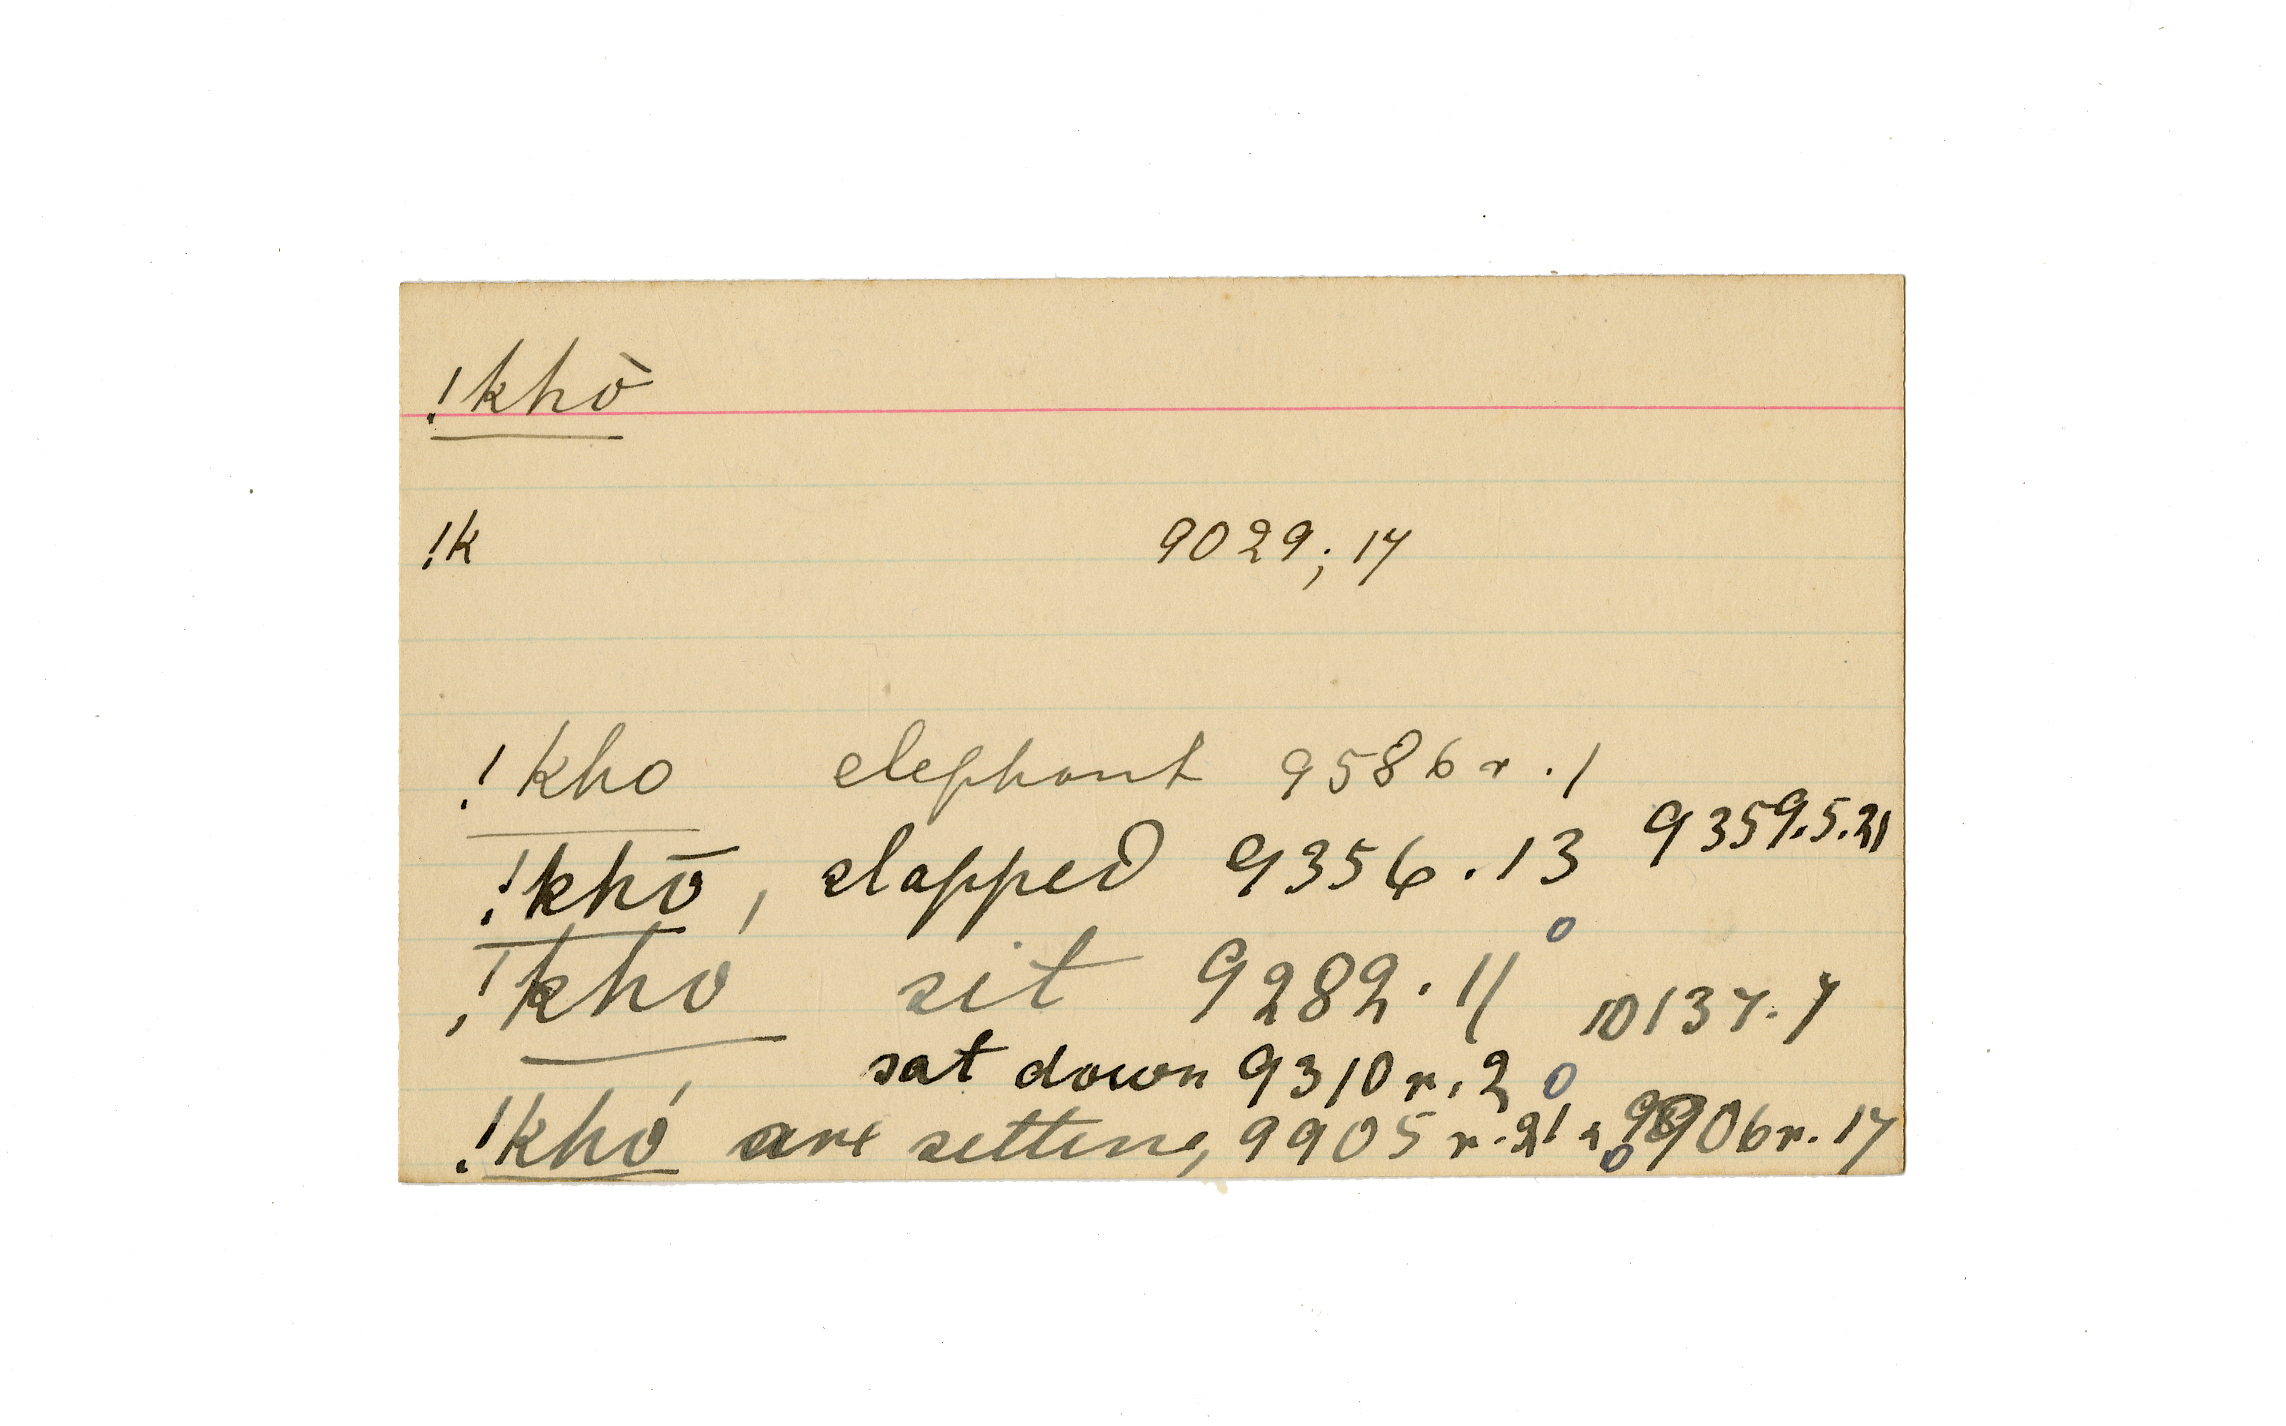 !khò
!k 9029; 17
!kho elephant 9586 r. 1
!khō, slapped 9356. 13 9359. 5. 21
!kho sit 9282. 11 10137. 7
sat down 9310 r. 2
!khó are setting, 9905 r. 21 9906 r. 17